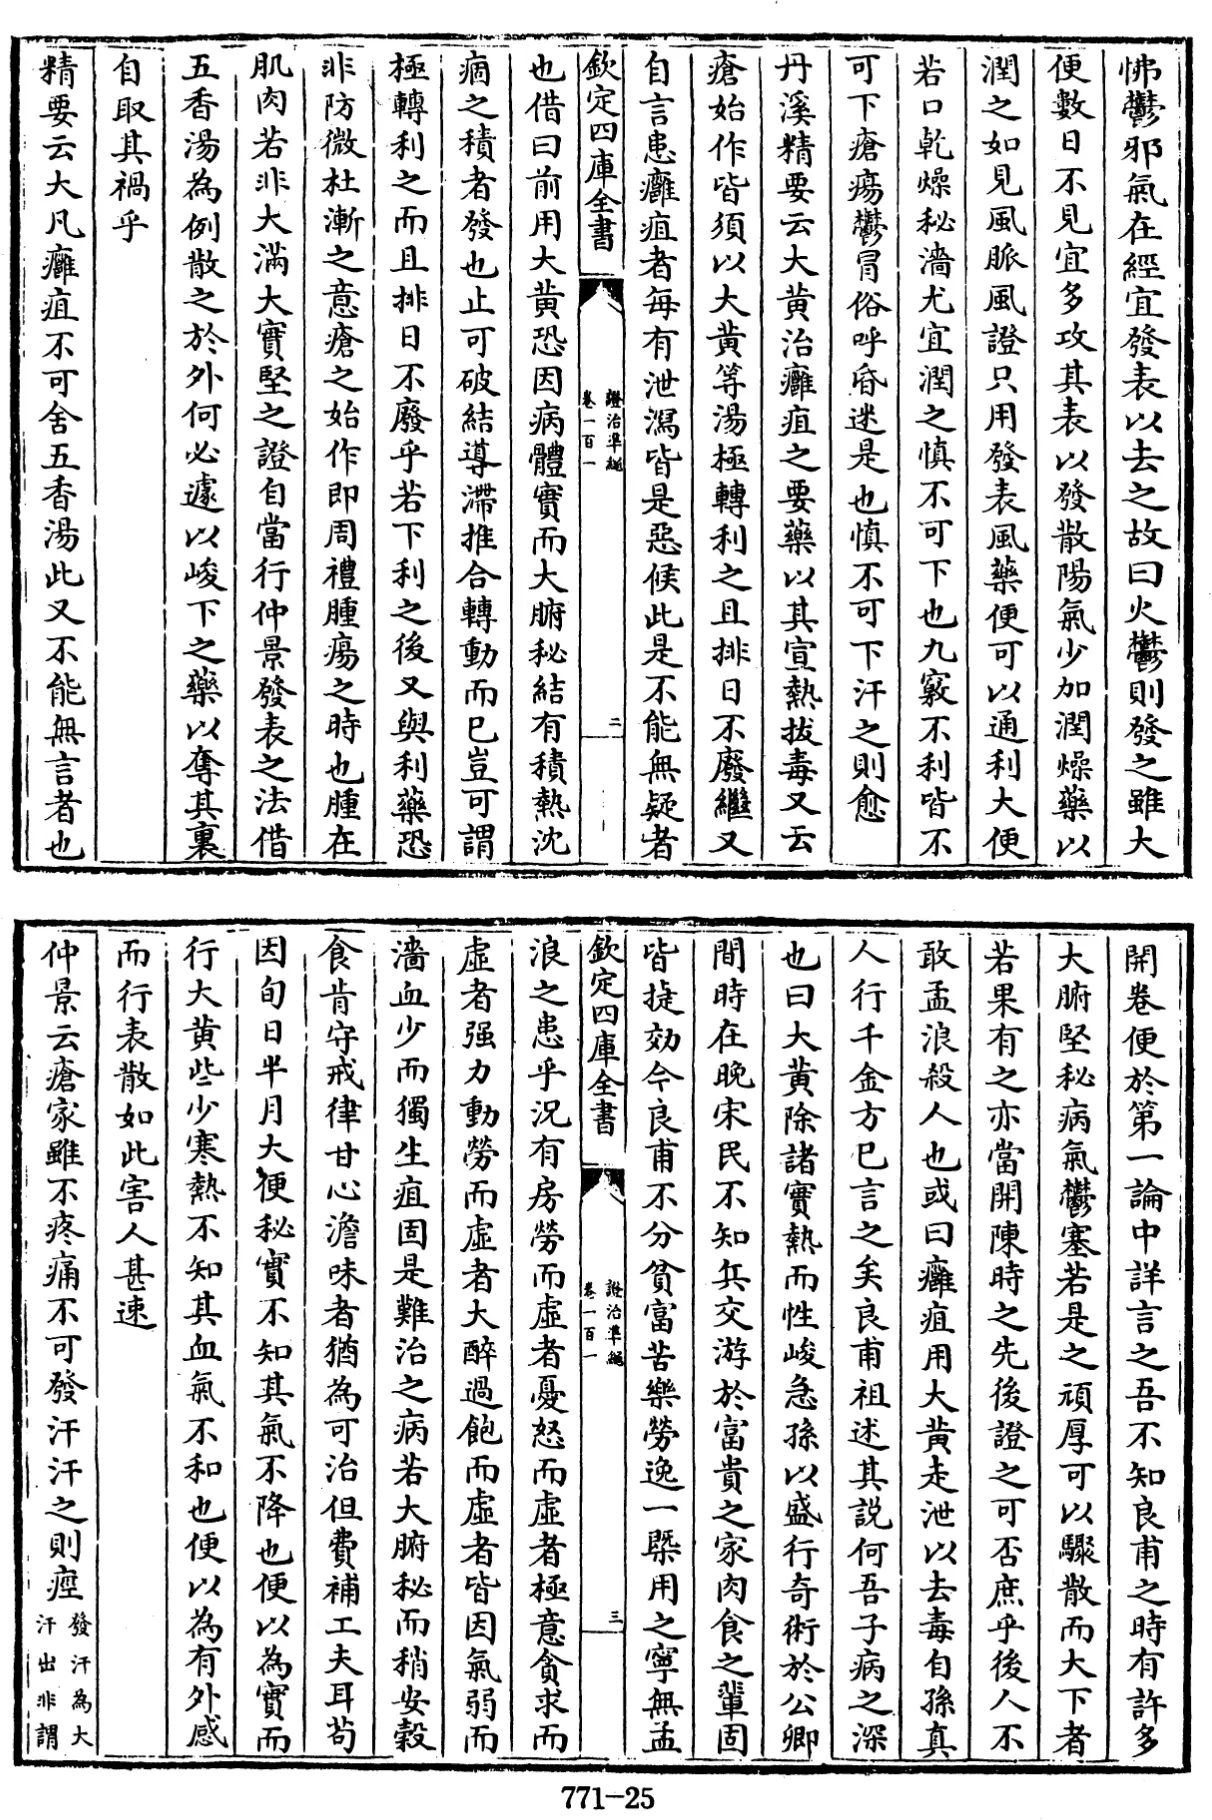 怫鬱邪氣在經宜發表以去之故曰火鬱則發之雖大
便數日不見宜多攻其表以發散陽氣少加潤燥藥以
潤之如見風脈風證只用發表風藥便可以通利大便
若口乾燥秘濇尤宜潤之慎不可下也九竅不利皆不
可下瘡瘍鬱冒俗呼昏迷是也慎不可下汗之則愈
丹溪精要云大黄治癰疽之要藥以其宣熱拔毒又云
瘡始作皆須以大黄等湯極轉利之且排日不廢繼又
自言患癰疽者每有泄瀉皆是惡候此是不能無疑者
欽定四庫全書
證治準繩
卷一百一
二
也借曰前用大黄恐因病體實而大腑秘結有積熱沈
痼之積者發也止可破結導滯推合轉動而已豈可謂
極轉利之而且排日不廢乎若下利之後又與利藥恐
非防微杜漸之意瘡之始作即周禮腫瘍之時也腫在
肌肉若非大滿大實堅之證自當行仲景發表之法借
五香湯為例散之於外何必遽以峻下之藥以奪其裏
自取其禍乎
精要云大凡癰疽不可舍五香湯此又不能無言者也
開卷便於第一論中詳言之吾不知良甫之時有許多
大腑堅秘病氣鬱塞若是之頑厚可以驟散而大下者
若果有之亦當開陳時之先後證之可否庶乎後人不
敢孟浪殺人也或曰癰疽用大黄走泄以去毒自孫真
人行千金方已言之矣良甫祖述其説何吾子病之深
也曰大黄除諸實熱而性峻急孫以盛行奇術於公卿
間時在晚宋民不知兵交游於富貴之家肉食之輩固
皆捷効今良甫不分貧富苦樂勞逸一槩用之寧無孟
欽定四庫全書
證治準繩
卷一百一
三
浪之患乎況有房勞而虛者憂怒而虛者極意貪求而
虛者强力動勞而虛者大醉過飽而虛者皆因氣弱而
濇血少而獨生疽固是難治之病若大腑秘而稍安穀
食肯守戒律甘心澹味者猶為可治但費補工夫耳茍
因旬日半月大便秘實不知其氣不降也便以為實而
行大黄些少寒熱不知其血氣不和也便以為有外感
而行表散如此害人甚速
仲景云瘡家雖不疼痛不可發汗汗之則痙發汗為大
汗出非謂
771-25